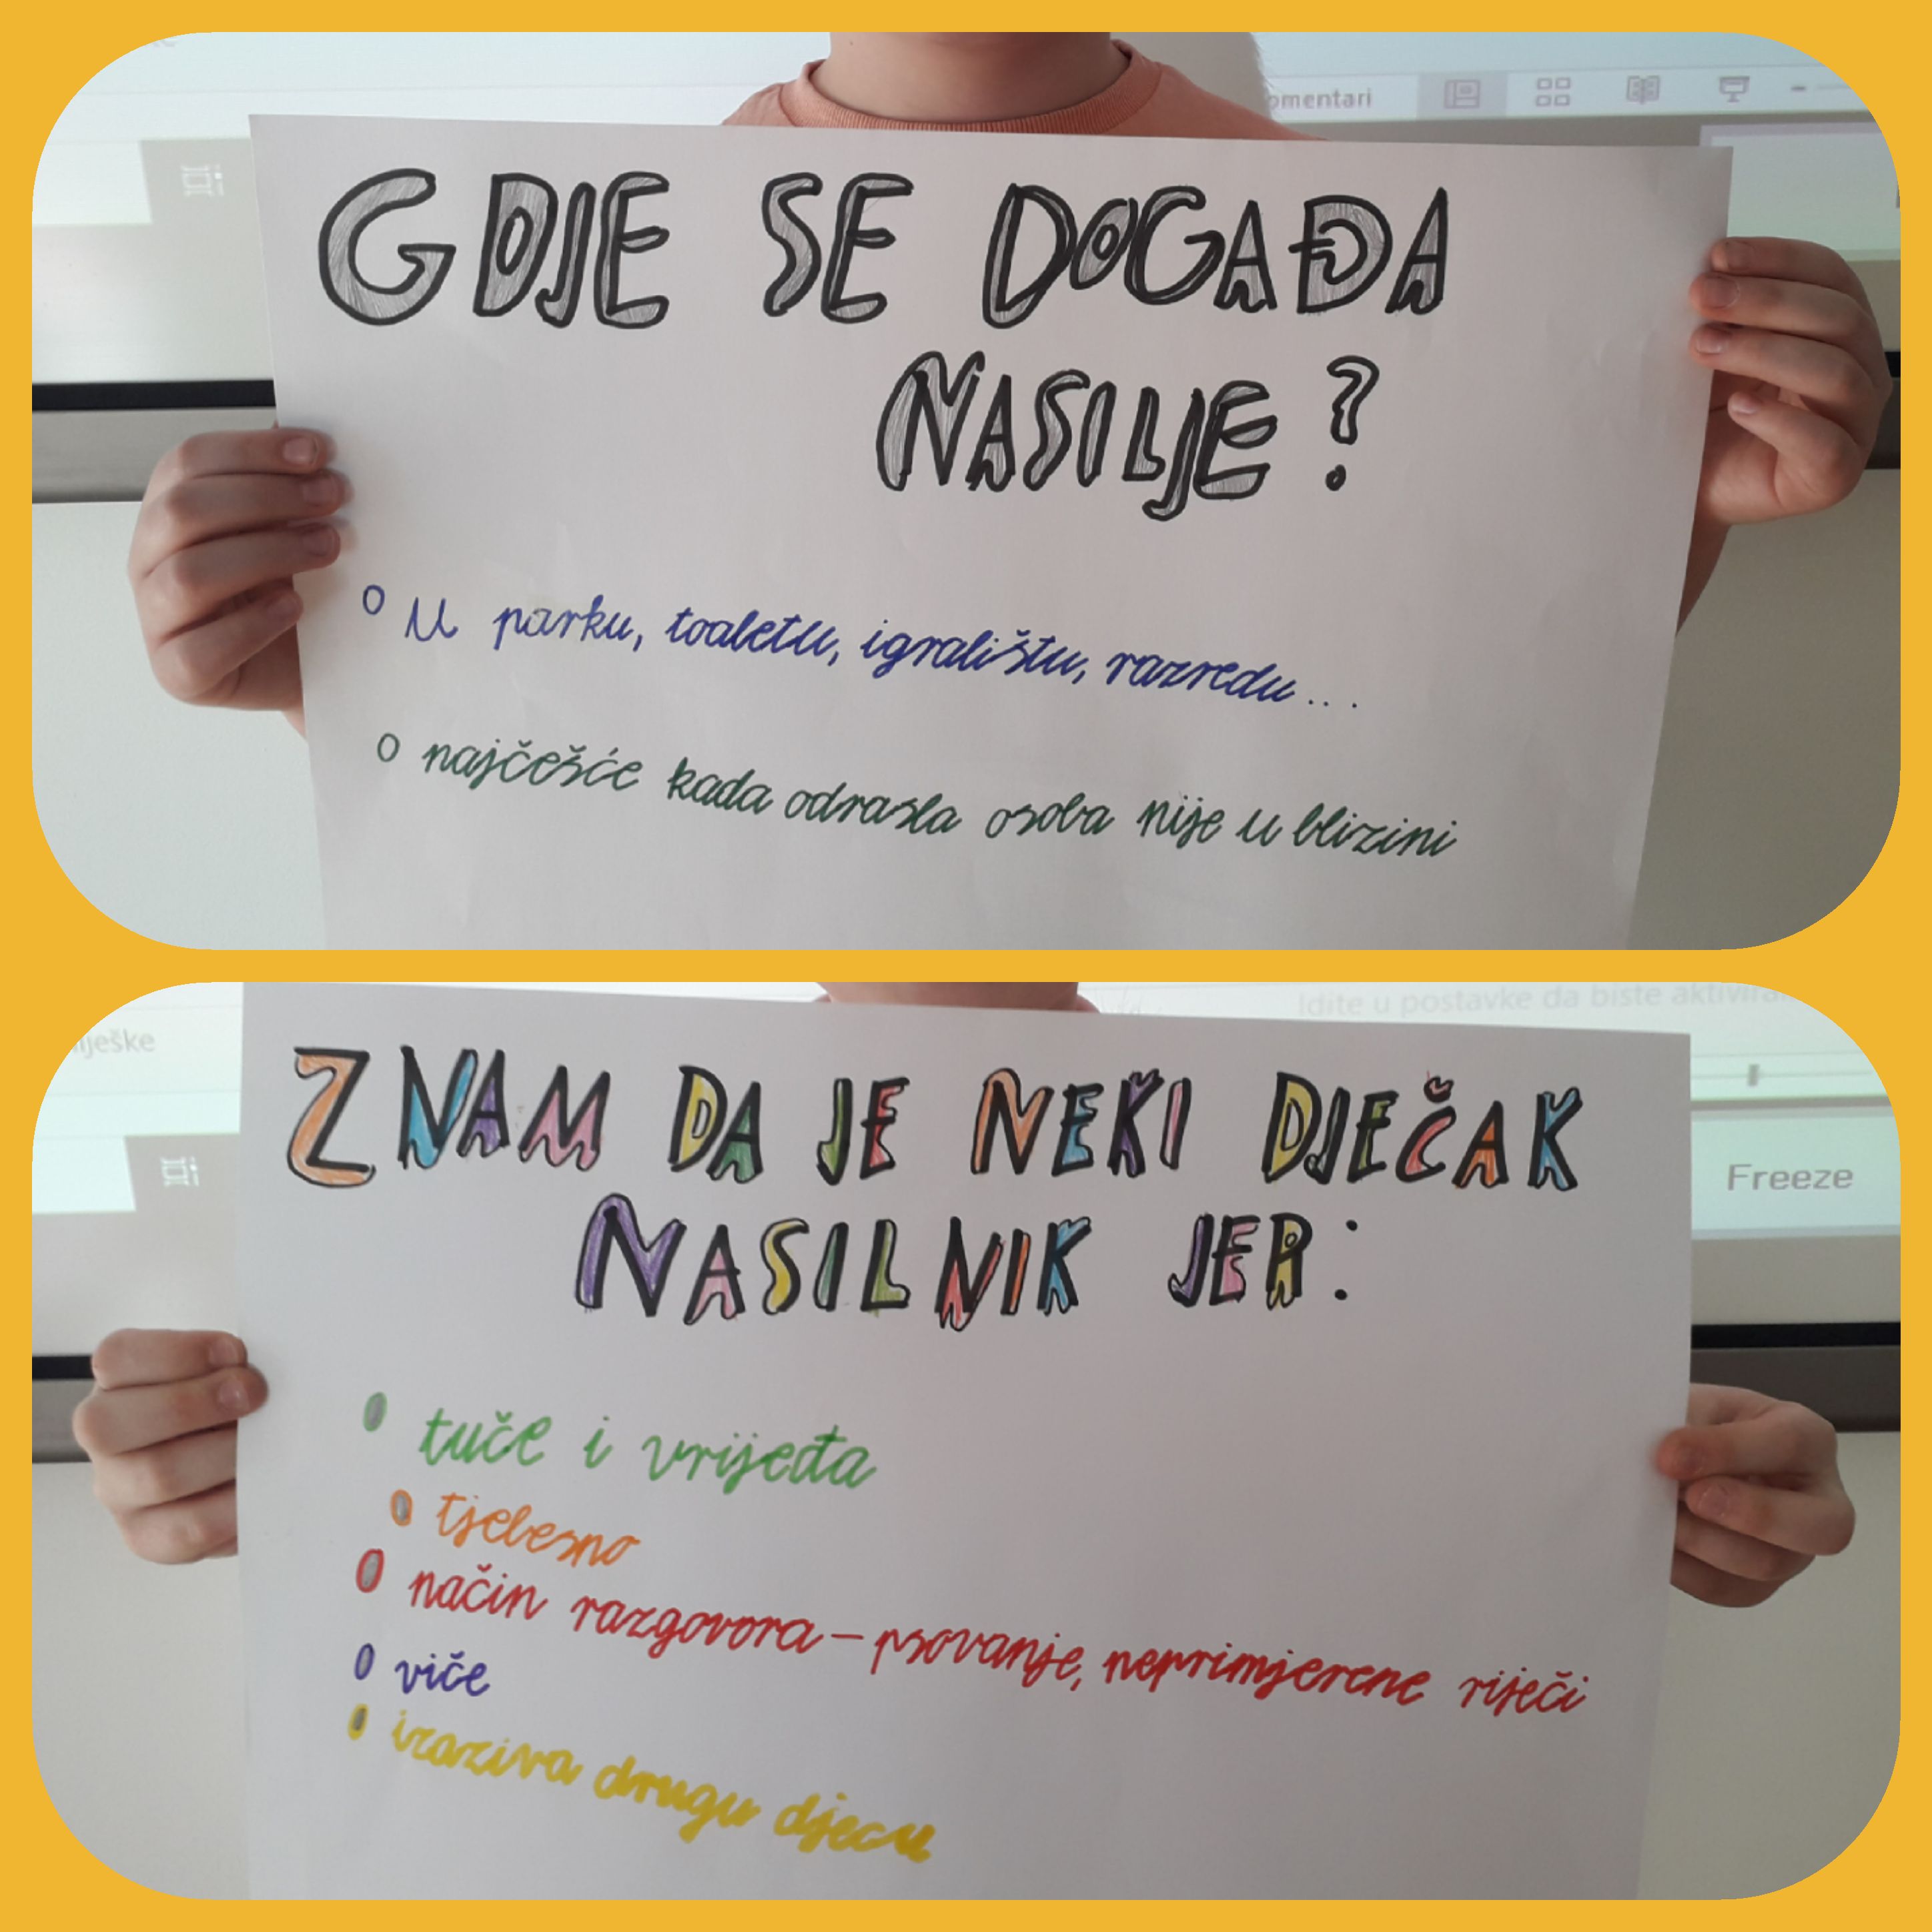 omentari
GDJE SE DOGAĐA
NASILJE?
U parku, toaletu, igralištu, razredu...
najčešće kada odrasla osoba nije u blizini
Idite u postavke da biste aktivirali
ješke
ZNAM DA JE NEKI DJEČAK
Freeze
NASILNIK JER:
tuče i vrijeđa
tjelesno
način razgovora – psovanje, neprimjerene riječi
viče
izaziva drugu djecu